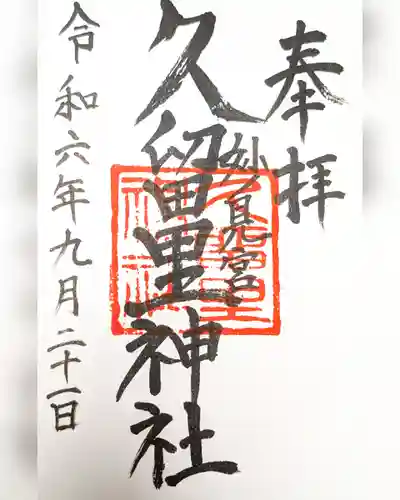 奉拝
妙見宮
久留里神社
令和六年九月二十一日